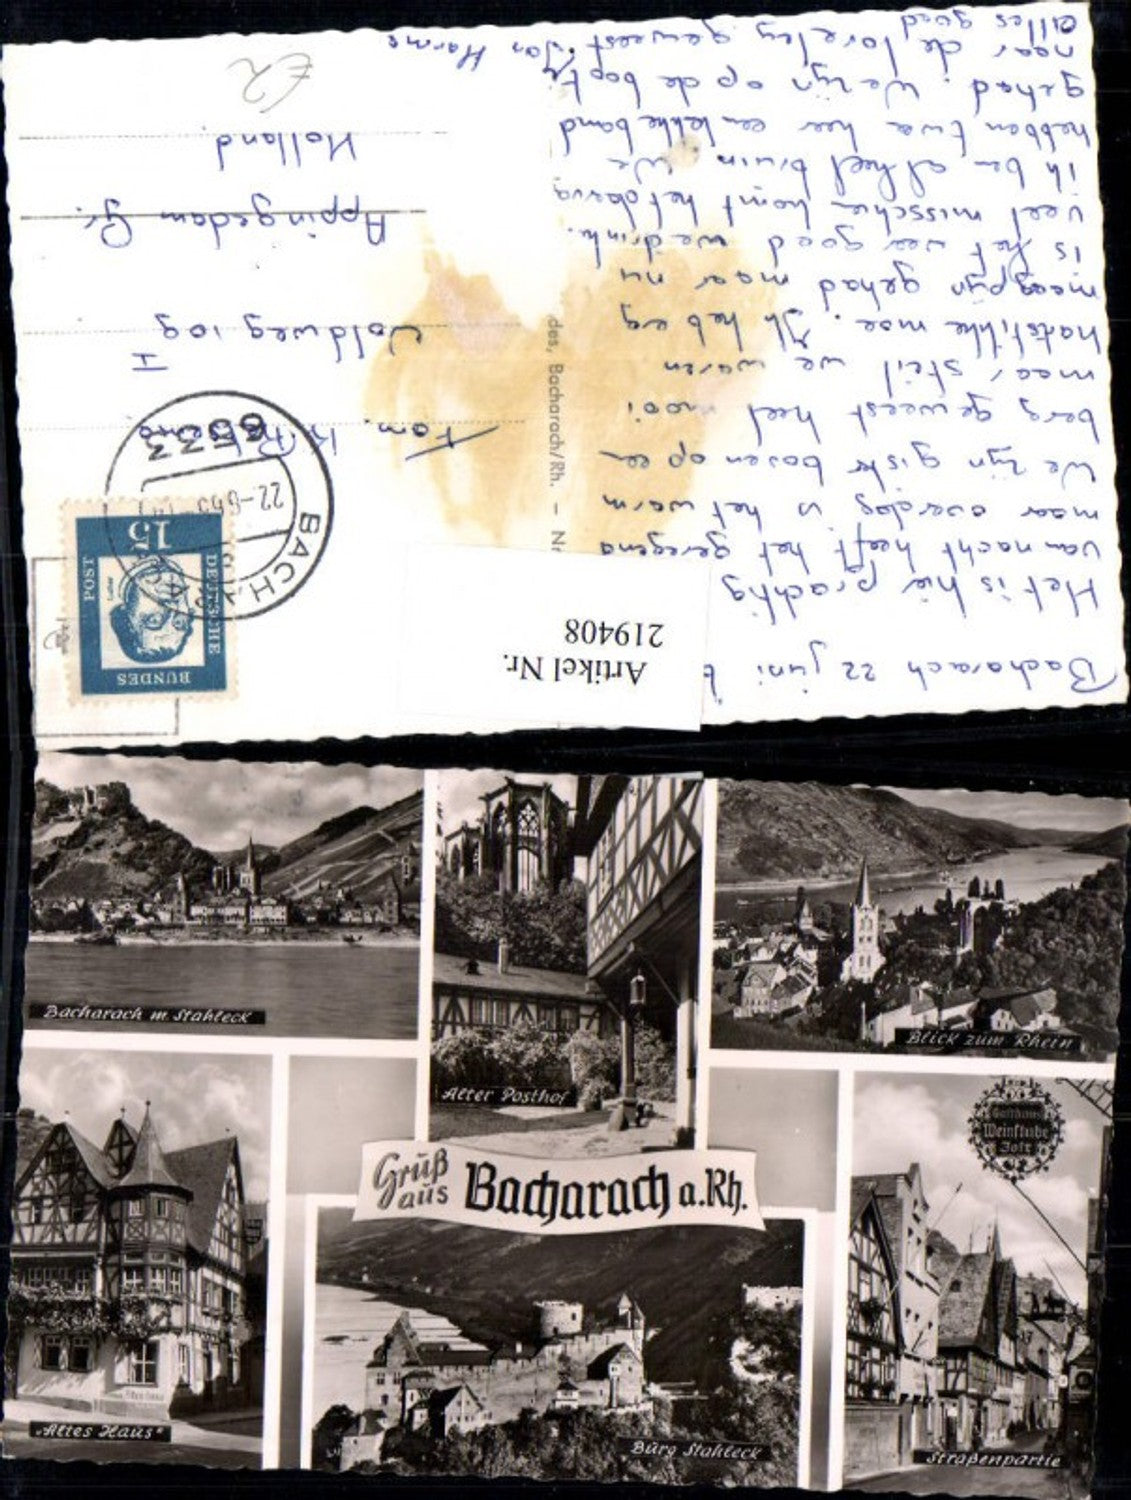 Bacharach 22 juni
Het is hier prachtig
van nacht heeft het geregend
maar overdag is het warm
We zijn gister boven op een
berg geweest heel mooi
maar steil we waren
hartstikke moe. Ik heb erg
maagpijn gehad maar nu
is het weer goed we drinken
veel misschien komt het daarvan
ik ben al heel bruin We
hebben twee keer een lekke band
gehad. We zijn op de boot
naar de Loreley geweest
alles goed
Jan Harms
Fam.
Woldweg 109
I
Appingedam Gr.
Holland
€2
BACHARACH
22.-6.65
6533
DEUTSCHE
BUNDES
POST
15
Luther
des, Bacharach/Rh. – Nr
Artikel Nr.
219408
Bacharach m. Stahleck
Alter Posthof
Blick zum Rhein
Gruß
aus
Bacharach a. Rh.
"Altes Haus"
Burg Stahleck
Gasthaus
Weinstube
Jost
Straßenpartie